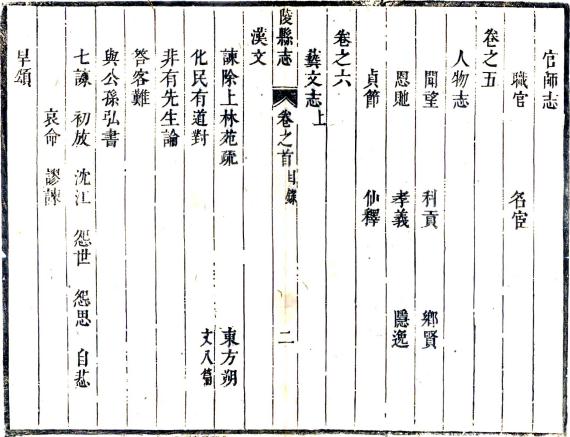 官師志
職官 名宦
卷之五
人物志
聞望 科貢 鄉賢
恩貤 孝義 隱逸
貞節 仙釋
卷之六
藝文志上
陵縣志 卷之首目錄 二
漢文
諫除上林苑疏 東方朔
化民有道對 文八篇
非有先生論
答客難
與公孫弘書
七諫 初放 沈江 怨世 怨思 自悲
哀命 謬諫
旱頌